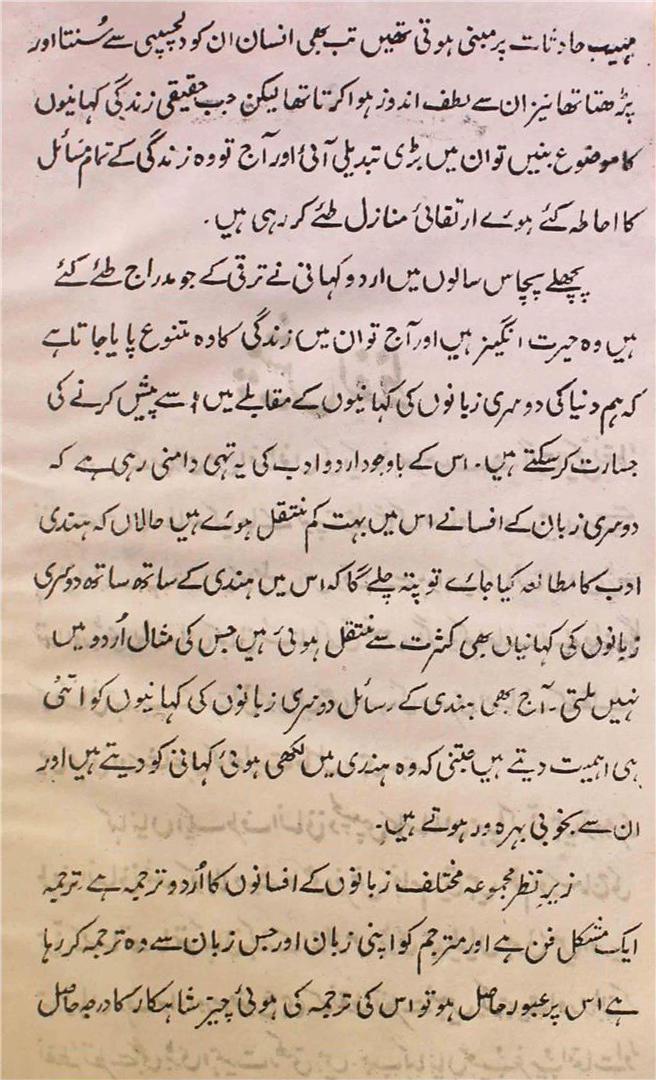 مہیب حادثات پر مبنی ہوتی تھیں تب بھی انسان ان کو دلچسپی سے سُنتا اور
پڑھتا تھا نیز ان سے لطف اندوز ہوا کرتا تھا لیکن جب حقیقی زندگی کہانیوں
کا موضوع بنیں تو ان میں بڑی تبدیلی آئی اور آج تو وہ زندگی کے تمام مسائل
کا احاطہ کئے ہوے ارتقائی منازل طئے کر رہی ہیں۔
پچھلے پچاس سالوں میں اردو کہانی نے ترقی کے جو مدراج طئے کئے
ہیں وہ حیرت انگیز ہیں اور آج تو ان میں زندگی کا وہ تنوع پایا جاتا ہے
کہ ہم دنیا کی دوسری زبانوں کی کہانیوں کے مقابلے میں اسے پیش کرنے کی
جسارت کر سکتے ہیں۔ اس کے باوجود اردو ادب کی یہ تہی دامنی رہی ہے کہ
دوسری زبان کے افسانے اس میں بہت کم منتقل ہوے ہیں حالاں کہ ہندی
ادب کا مطالعہ کیا جاے تو پتہ چلے گا کہ اس میں ہندی کے ساتھ ساتھ دوسری
زبانوں کی کہانیاں بھی کثرت سے منتقل ہوئی ہیں جس کی مثال اُردو میں
نہیں ملتی۔ آج بھی ہندی کے رسائل دوسری زبانوں کی کہانیوں کو اتنی
ہی اہمیت دیتے ہیں جتنی کہ وہ ہندی میں لکھی ہوئی کہانی کو دیتے ہیں اور
ان سے بخوبی بہرہ ور ہوتے ہیں۔
زیرِ نظر مجموعہ مختلف زبانوں کے افسانوں کا اُردو ترجمہ ہے۔ ترجمہ
ایک مشکل فن ہے اور مترجم کو اپنی زبان اور جس زبان سے وہ ترجمہ کر رہا
ہے اس پر عبور حاصل ہو تو اس کی ترجمہ کی ہوئی چیز شاہکار کا درجہ حاصل